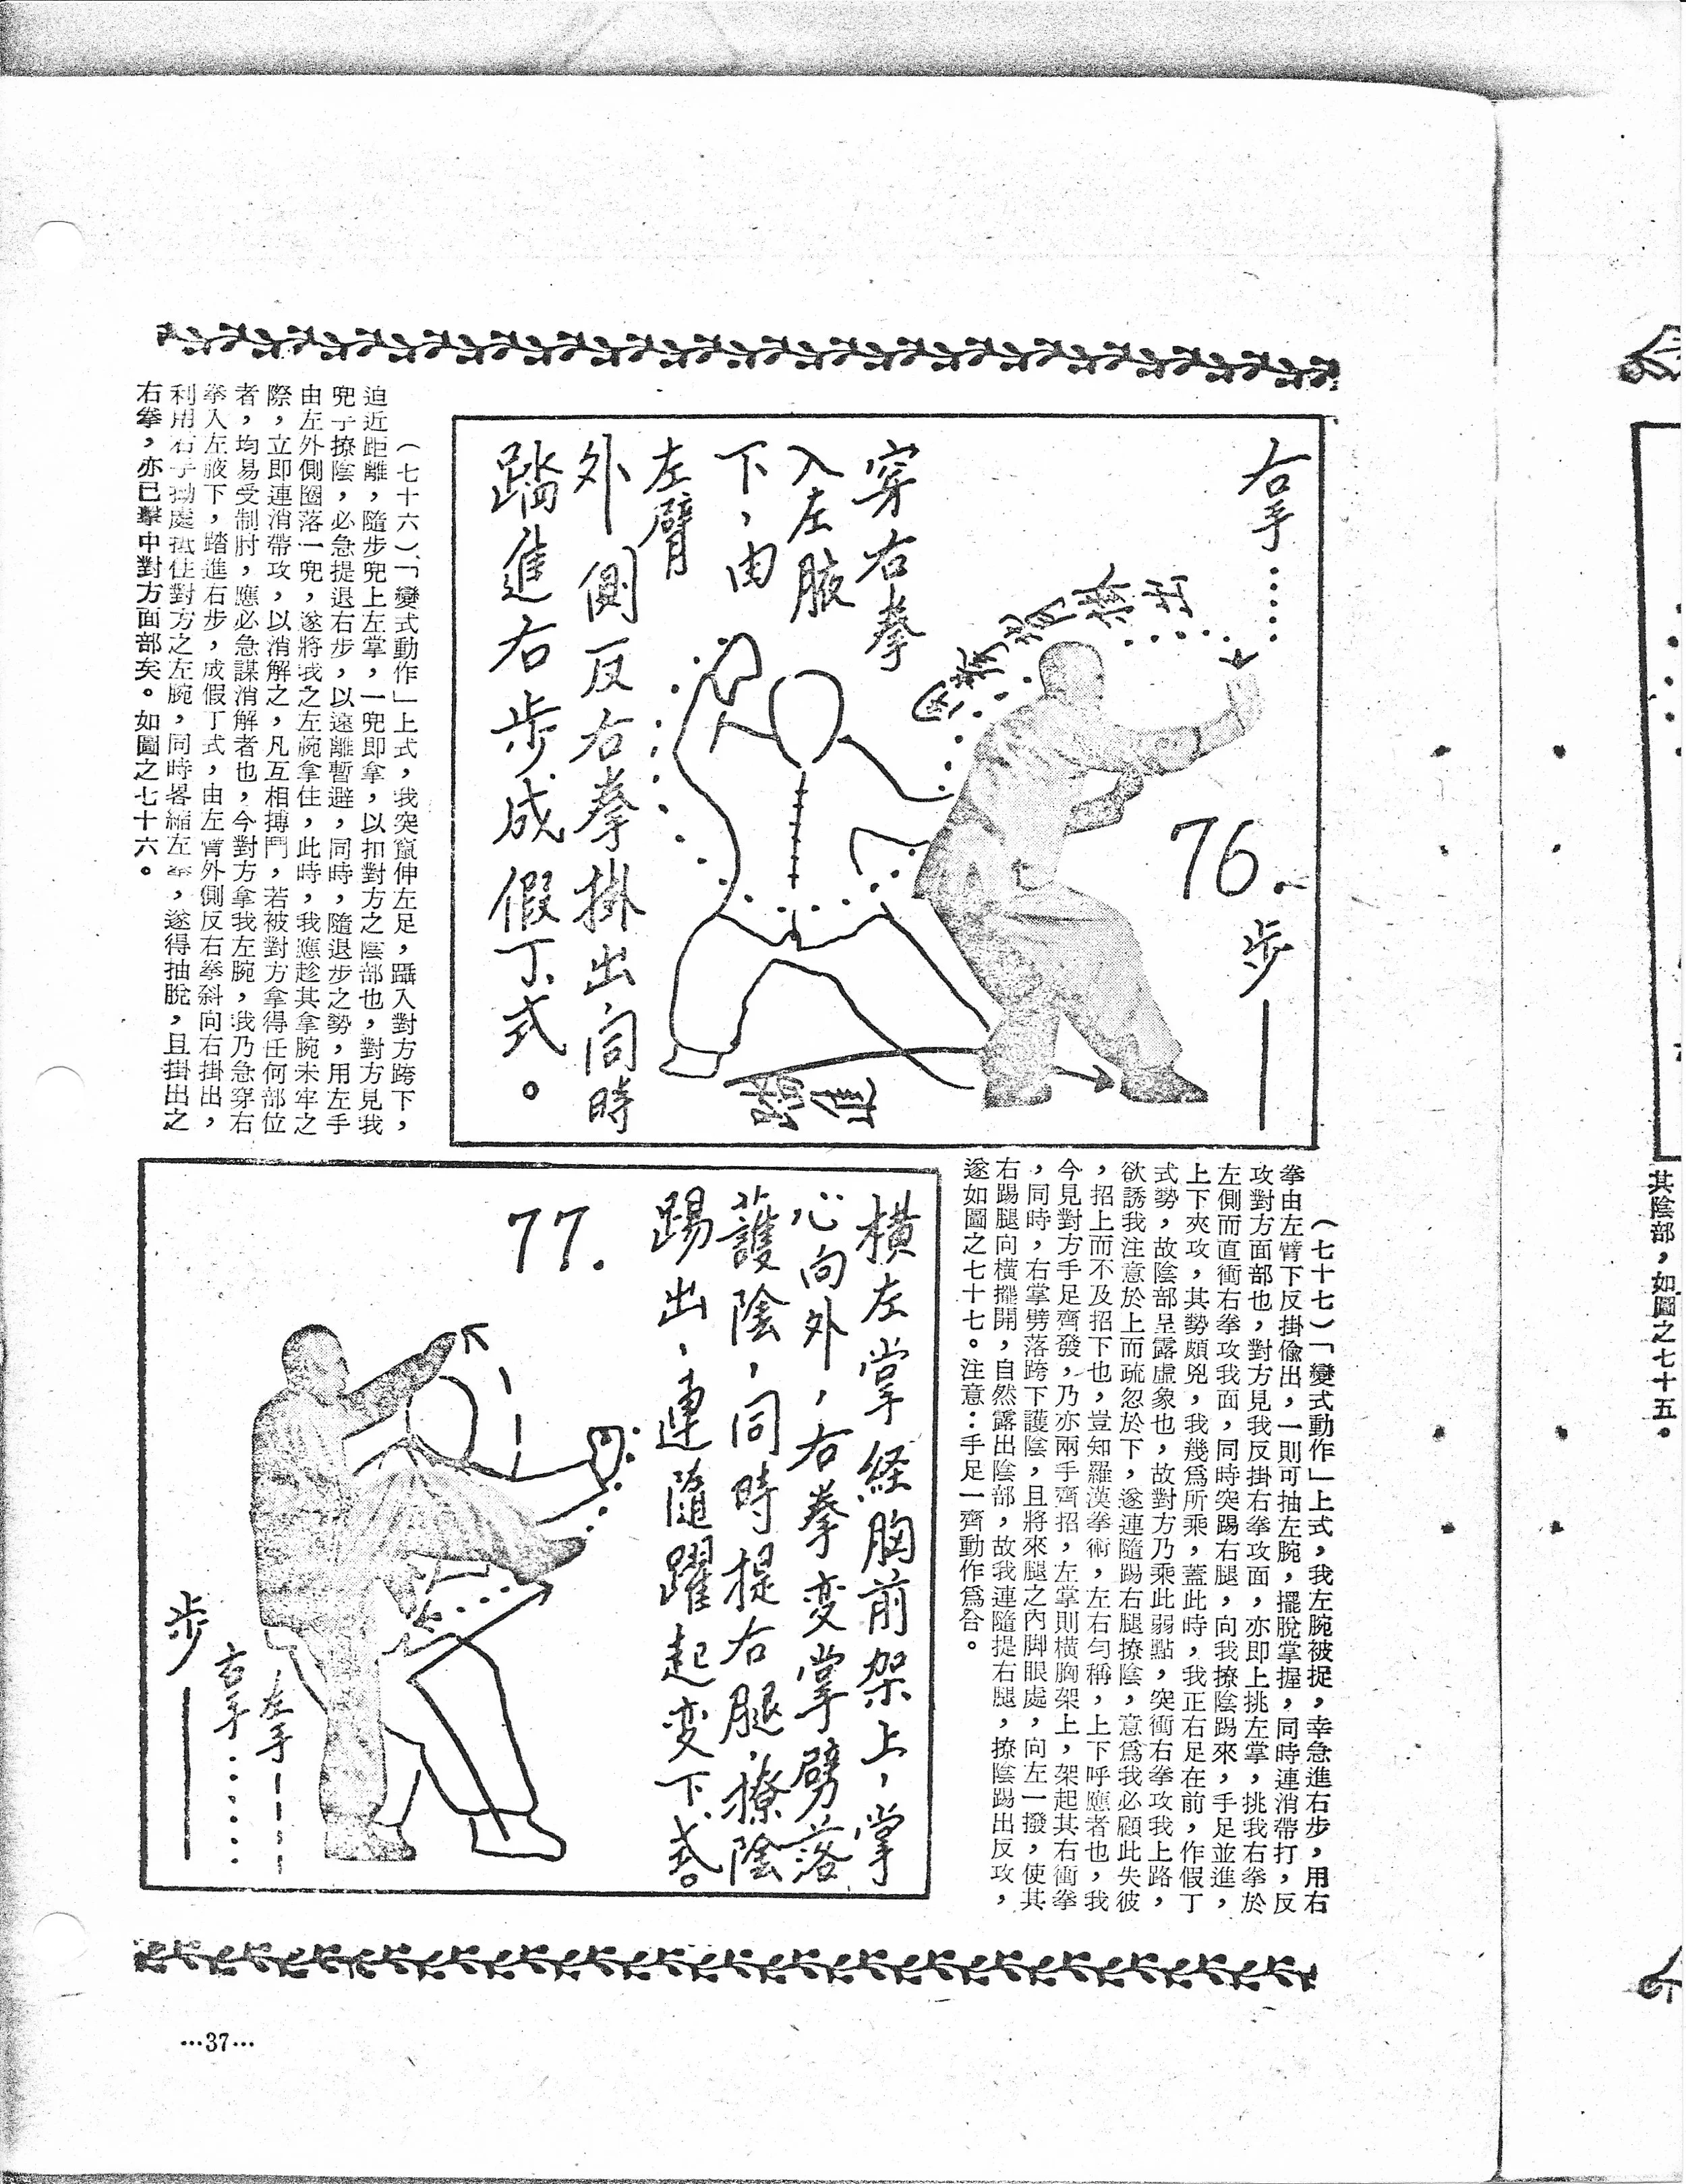 右手……
76.
步——
穿右拳
入左腋
下，由
左臂
外側反右拳掛出，同時
踏進右步成假丁式。
（七十六）「變式動作」上式，我突竄伸左足，躡入對方跨下，
迫近距離，隨步兜上左掌，一兜即拿，以扣對方之陰部也，對方見我
兜手撩陰，必急提退右步，以遠離暫避，同時，隨退步之勢，用左手
由左外側圈落一兜，遂將我之左腕拿住，此時，我應趁其拿腕未牢之
際，立即連消帶攻，以消解之，凡互相搏鬥，若被對方拿得任何部位
者，均易受制肘，應必急謀消解者也，今對方拿我左腕，我乃急穿右
拳入左腋下，踏進右步，成假丁式，由左臂外側反右拳斜向右掛出，
利用右手拗處抵住對方之左腕，同時畧縮左，遂得抽脫，且掛出之
右拳，亦已擊中對方面部矣。如圖之七十六。
（七十七）「變式動作」上式，我左腕被捉，幸急進右步，用右
拳由左臂下反掛偸出，一則可抽左腕，擺脫掌握，同時連消帶打，反
攻對方面部也，對方見我反掛右拳攻面，亦即上挑左掌，挑我右拳於
左側而直衝右拳攻我面，同時突踢右腿，向我撩陰踢來，手足並進，
上下夾攻，其勢頗兇，我幾爲所乘，蓋此時，我正右足在前，作假丁
式勢，故陰部呈露虛象也，故對方乃乘此弱點，突衝右拳攻我上路，
欲誘我注意於上而疏忽於下，遂連隨踢右腿撩陰，意爲我必顧此失彼
，招上而不及招下也，豈知羅漢拳術，左右勻稱，上下呼應者也，我
今見對方手足齊發，乃亦兩手齊招，左掌則橫胸架上，架起其右衝拳
，同時，右掌劈落跨下護陰，且將來腿之內脚眼處，向左一撥，使其
右踢腿向橫擺開，自然露出陰部，故我連隨提右腿，撩陰踢出反攻，
遂如圖之七十七。注意：手足一齊動作爲合。
橫左掌經胸前架上，掌
心向外，右拳变掌劈落
護陰，同時提右腿，撩陰
踢出，連隨躍起变下式。
77.
左手
右手……
步——
…37…
其陰部，如圖之七十五。